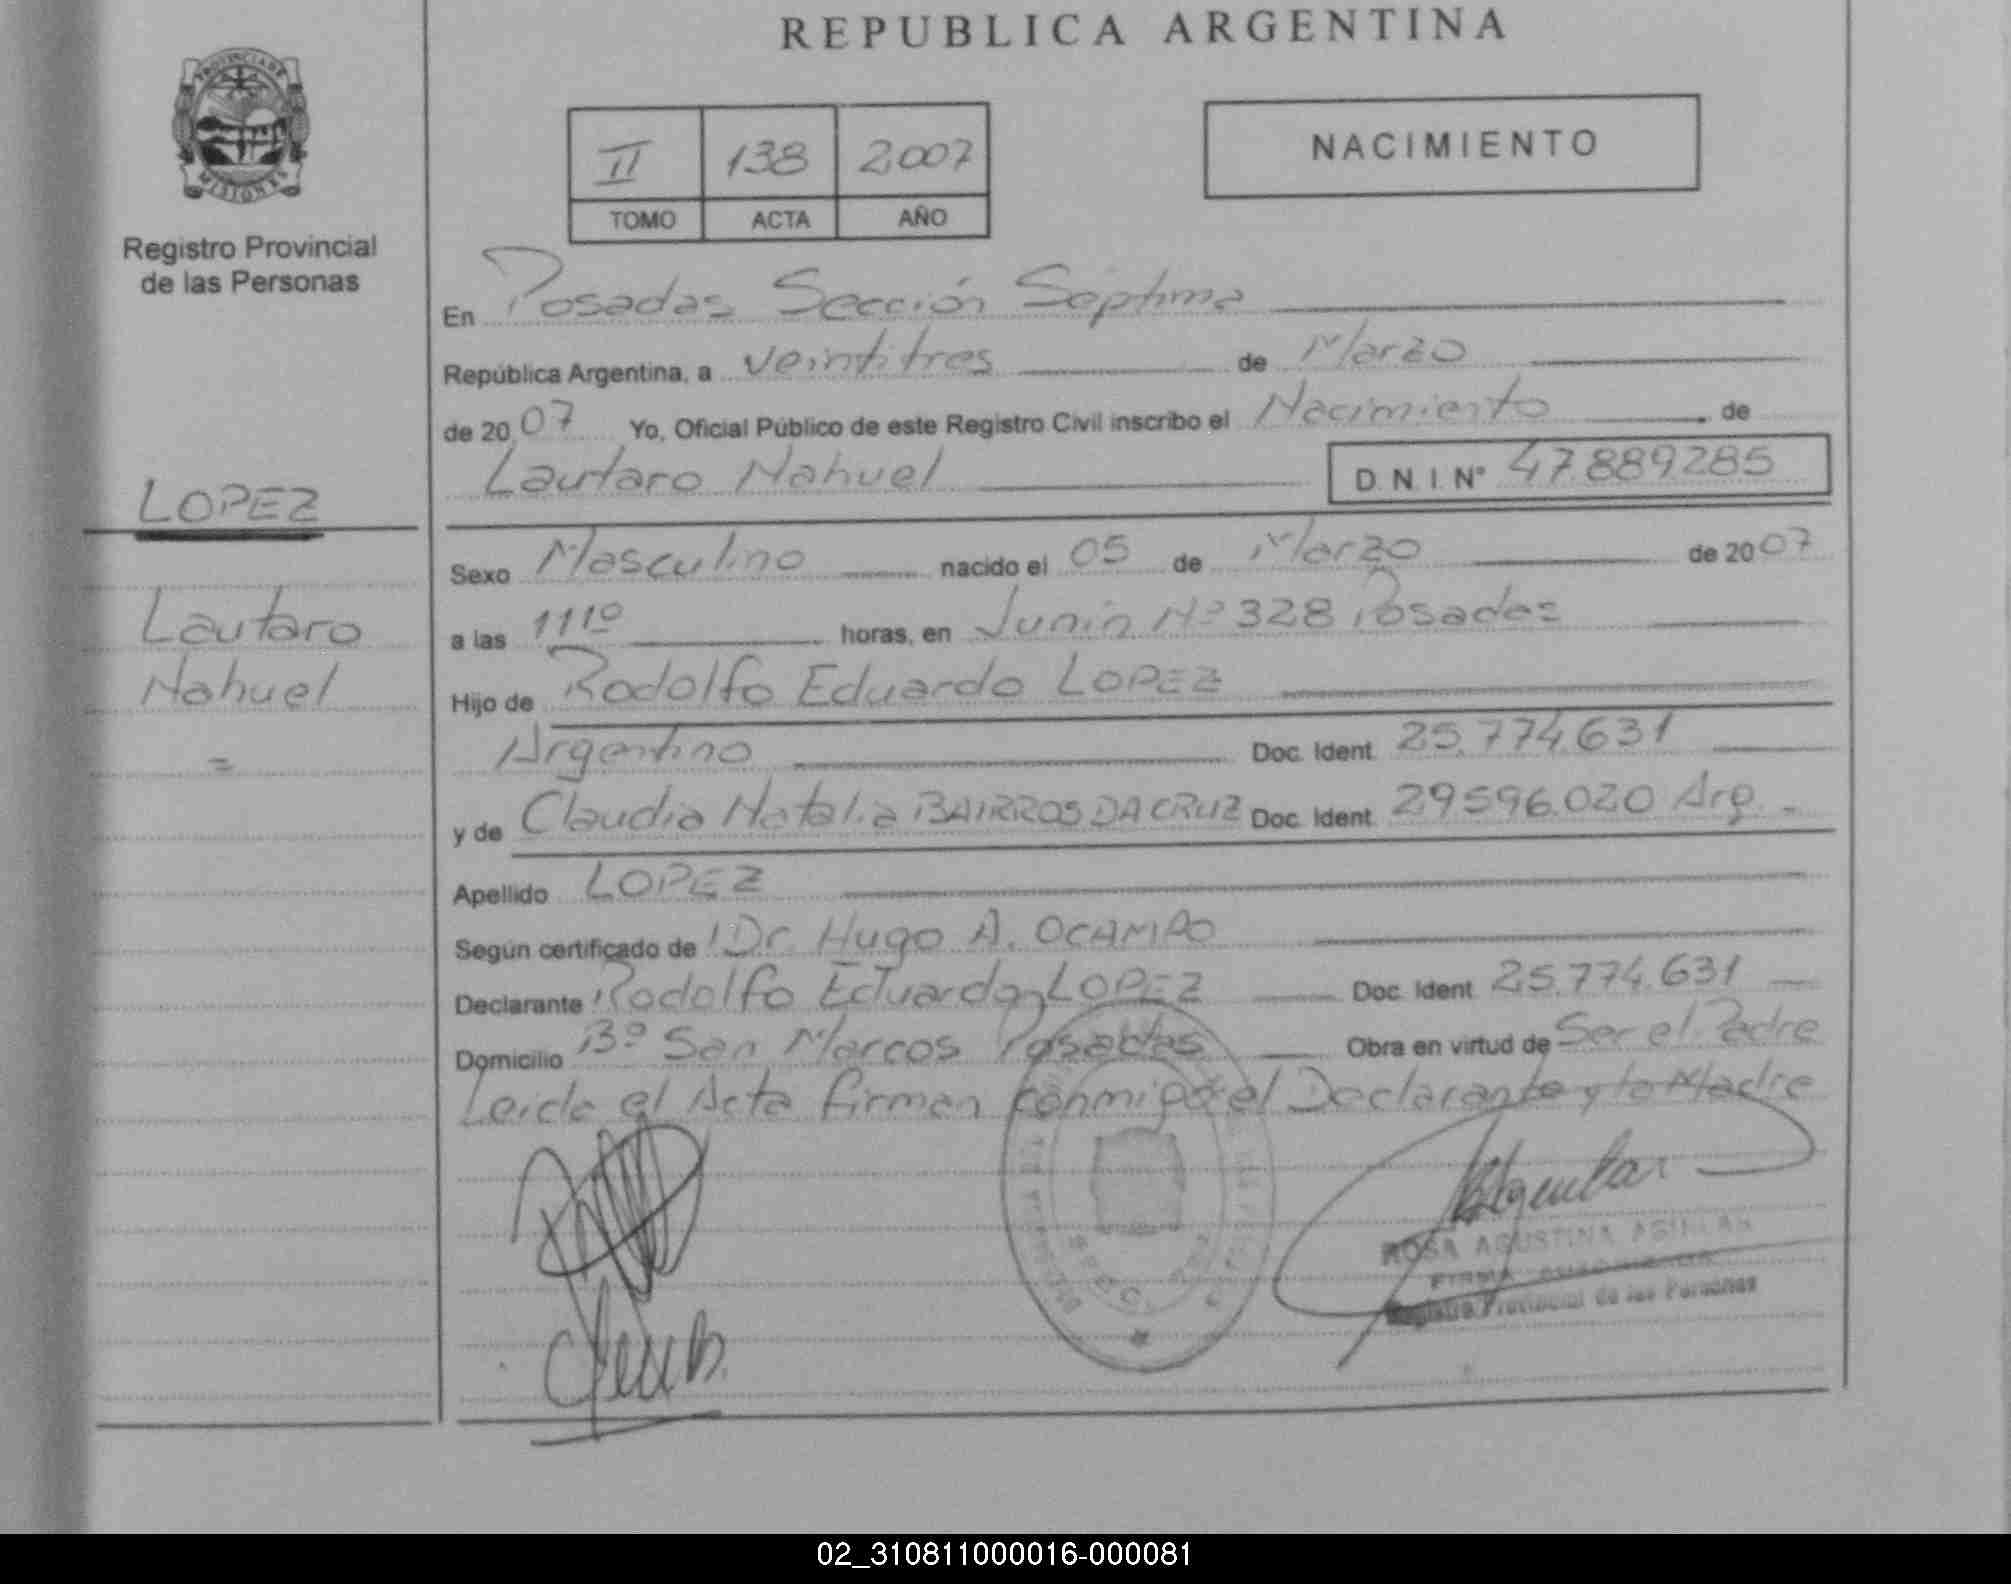 REPUBLICA ARGENTINA
PROVINCIA DE
MISIONES
Registro Provincial
de las Personas
II 138 2007
TOMO ACTA AÑO
NACIMIENTO
En Posadas Sección Séptima
República Argentina, a veintitres de Marzo
de 2007 Yo, Oficial Público de este Registro Civil inscribo el Nacimiento, de
Lautaro Nahuel D.N.I. Nº 47.889.285
LOPEZ
Lautaro
Nahuel
=
Sexo Masculino nacido el 05 de Marzo de 2007
a las 11 1º horas, en Junín Nº 328 Posadas
Hijo de Rodolfo Eduardo LOPEZ
Argentino Doc. Ident. 25.774.631
y de Claudia Natalia BAIRROS DA CRUZ Doc. Ident. 29596.020 Arg.-
Apellido LOPEZ
Según certificado de Dr. Hugo A. OCAMPO
Declarante Rodolfo Eduardo LOPEZ Doc. Ident. 25.774.631
Domicilio Bº San Marcos Posadas Obra en virtud de Ser el Padre
Leida el Acta firman conmigo el Declarante y la Madre
ROSA AGUSTINA AGUILAR
FIRMA
Registro Provincial de las Personas
02_310811000016-000081